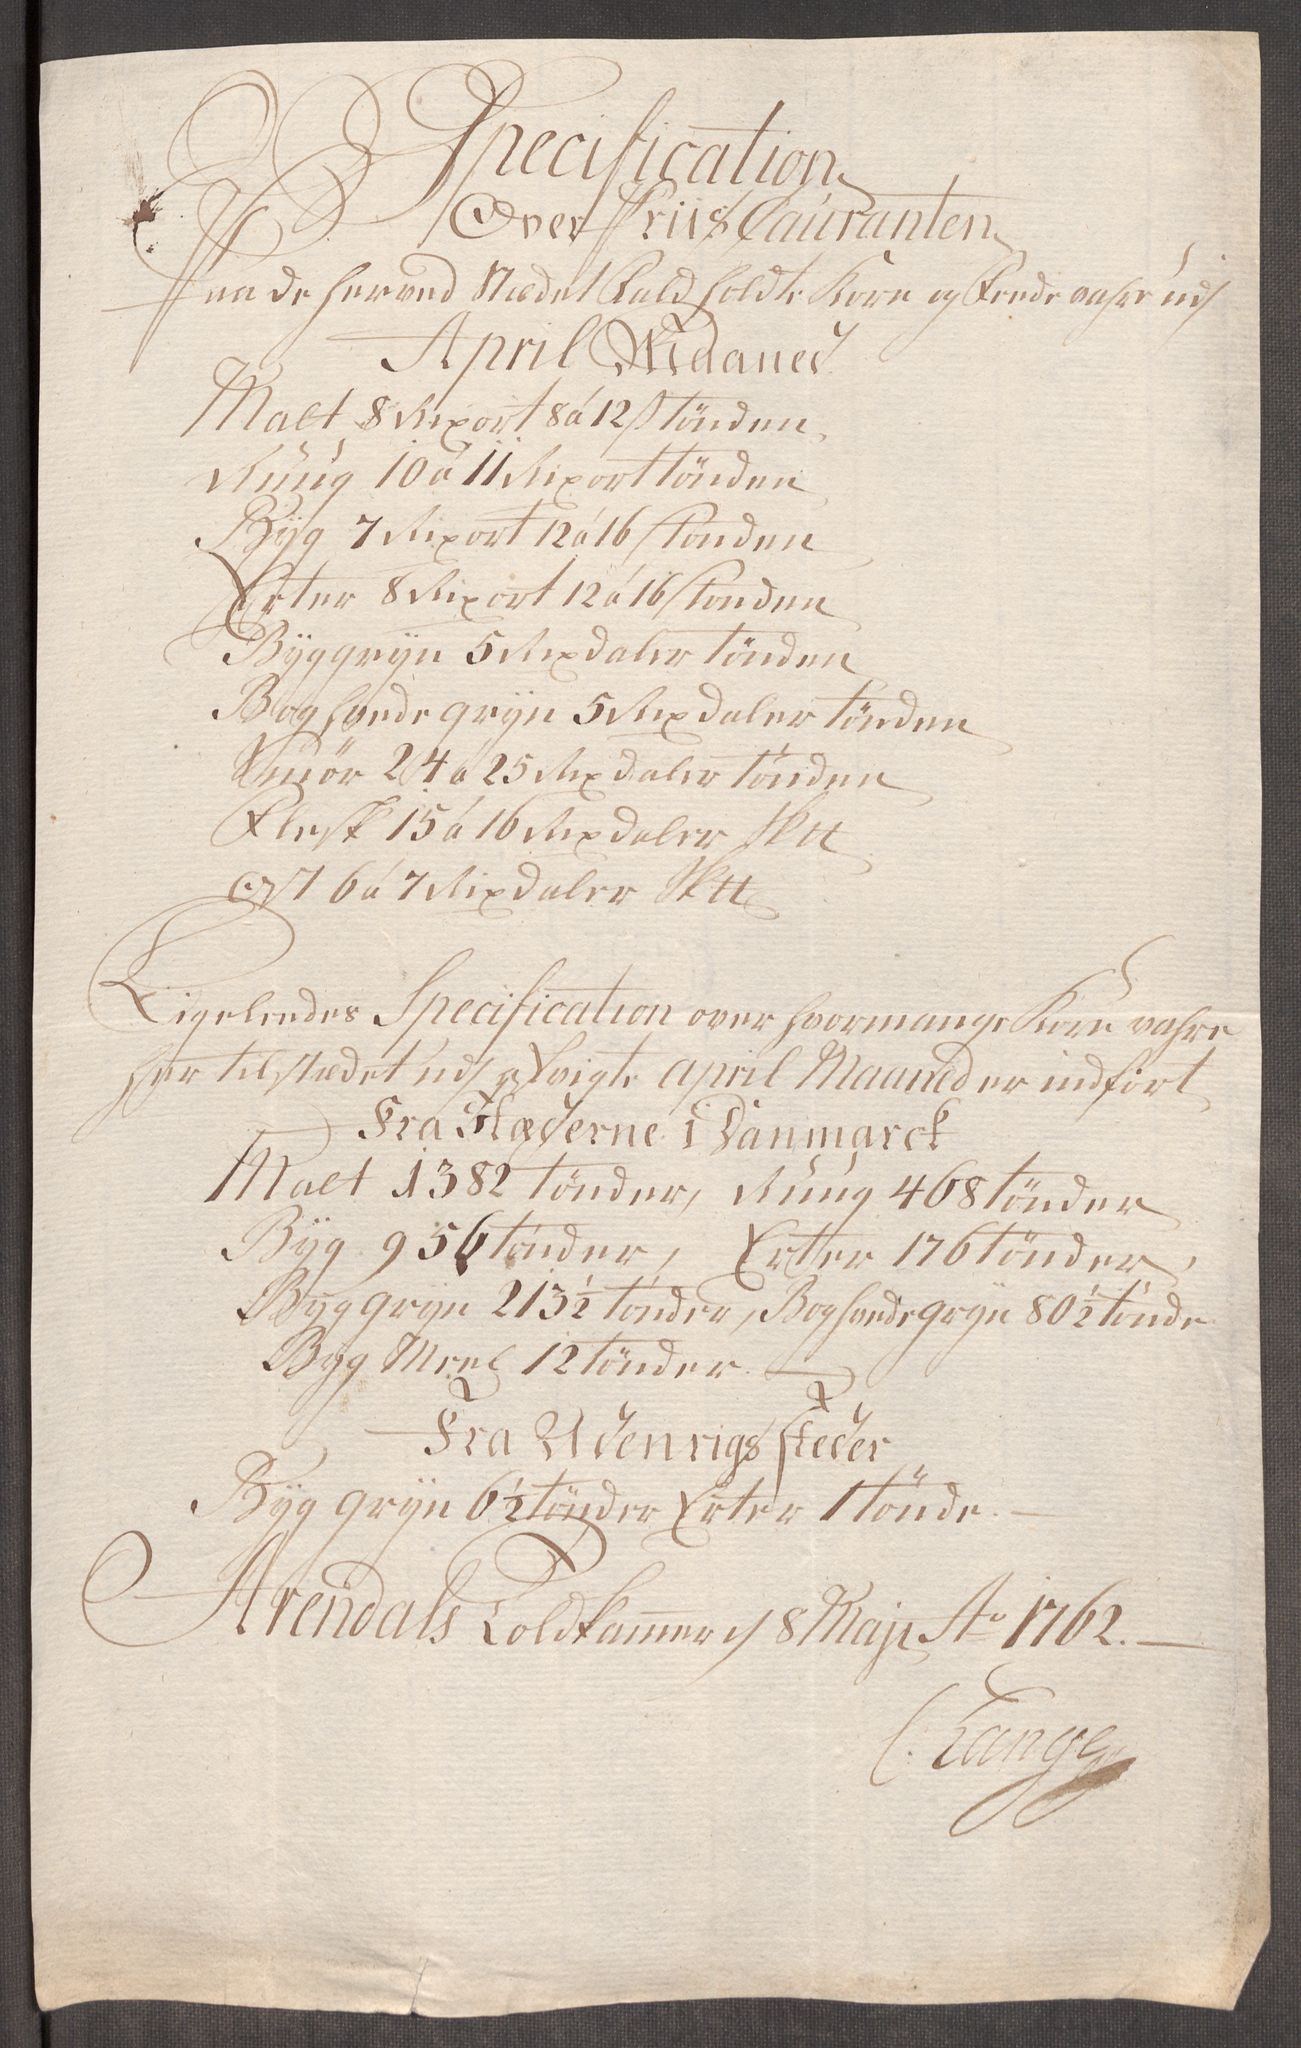 Specification
Over Priis Couranten
Paa de her ved Stædet Fald holdte Korn og Feede vahre udj
April Maaned
Malt 8 Rixort 8 á 12 s tönden
Rúúg 10 á 11 Rixort tönden
Byg 7 Rixort 12 á 16 s tönden
Erter 8 Rixort 12 á 16 s tönden
Byggryn 5 Rixdaler tönden
Boghvede gryn 5 Rixdaler tönden
Smör 24 á 25 Rixdaler tönden
Flesk 15 á 16 Rixdaler
Ost 6 á 7 Rixdaler
Ligeleedes Specification over hvormange Korn vahre
her til stædet udj april Maaned er indfört
Fra Stæderne i Danmarck
Malt 1382 tönder, Rúúg 468 tönder
Byg 956 tönder, Erter 176 tönder,
Byggryn 213½ tönder, Boghvedegryn 80½ tönde
Byg Meel 12 tönder.
Fra Udenrigs steder
Byg gryn 6½ tönder Erter 1 tönde.
Arendals Toldkammer d 8 Maji Ao 1762.
C. Lange